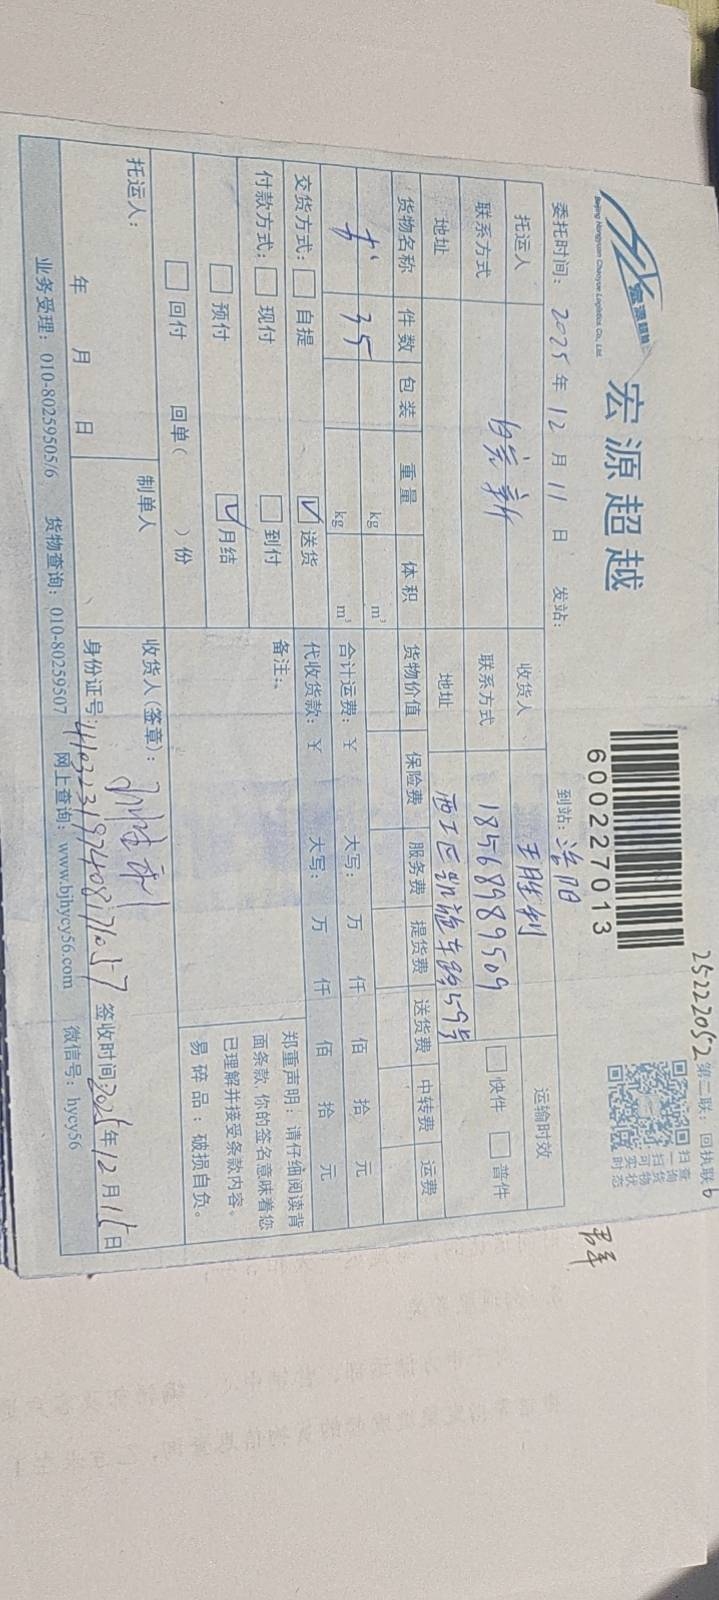 25222052 第二联：回执联
Beijing Hongyuan Chaoyue Logistics Co., Ltd.
宏源超越
宏源超越
600227013
扫一扫可实时
查询货物状态
委托时间：2025年12月11日 发站： 到站：洛阳
托运人 收货人 王胜利 运输时效
联系方式 联系方式 18568989509 快件 普件
地址 地址 西工区凯旋东路59号
货物名称 件数 包装 重量 体积 货物价值 保险费 服务费 提货费 送货费 中转费 运费
kg m³
书 35 kg m³ 合计运费：¥ 大写： 万 仟 佰 拾 元
交货方式： 自提 ☑ 送货 代收货款：¥ 大写： 万 仟 佰 拾 元
付款方式： 现付 到付 备注：
预付 ☑ 月结
回付 回单( )份
郑重声明：请仔细阅读背
面条款，你的签名意味着您
已理解并接受条款内容。
易碎品：破损自负。
托运人： 制单人 收货人(签章)：
年 月 日 身份证号: 签收时间:2025年12月15日
业务受理：010-80259505/6 货物查询：010-80259507 网上查询：www.bjhycy56.com 微信号：hycy56